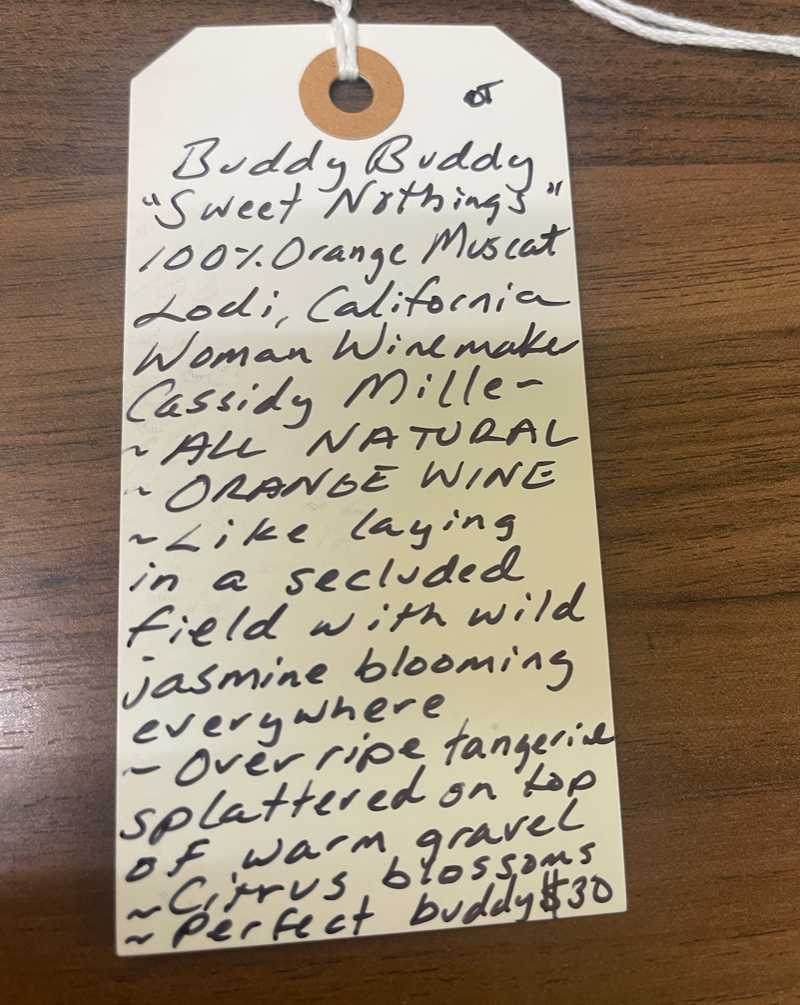 OT
Buddy Buddy
"Sweet Nothings"
100% Orange Muscat
Lodi, California
Woman Winemaker
Cassidy Miller
~ ALL NATURAL
~ ORANGE WINE
~ Like laying
in a secluded
field with wild
jasmine blooming
everywhere
~ Over ripe tangerine
splattered on top
of warm gravel
~ Citrus blossoms
~ Perfect buddy $30